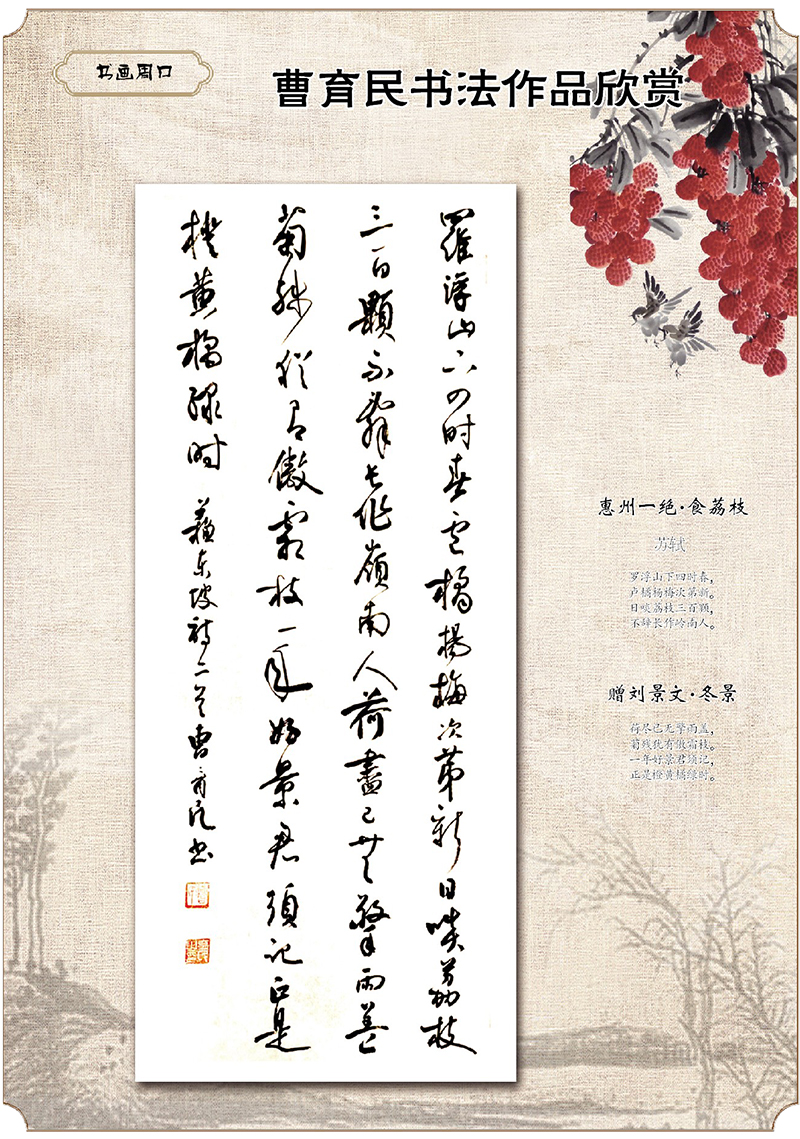 书画周口
曹育民书法作品欣赏
羅浮山下四时春盧橘楊梅次第新日啖荔枝
三百顆不辭長作嶺南人荷盡已無擎雨蓋
菊殘猶有傲霜枝一年好景君須記正是
橙黄橘绿时 蘇东坡詩二首曹育民书
惠州一绝·食荔枝
苏轼
罗浮山下四时春，
卢橘杨梅次第新。
日啖荔枝三百颗，
不辞长作岭南人。
赠刘景文·冬景
荷尽已无擎雨盖，
菊残犹有傲霜枝。
一年好景君须记，
正是橙黄橘绿时。